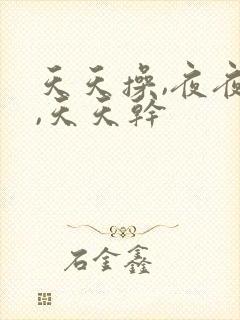 天天操,夜夜
,天天幹
石金鑫